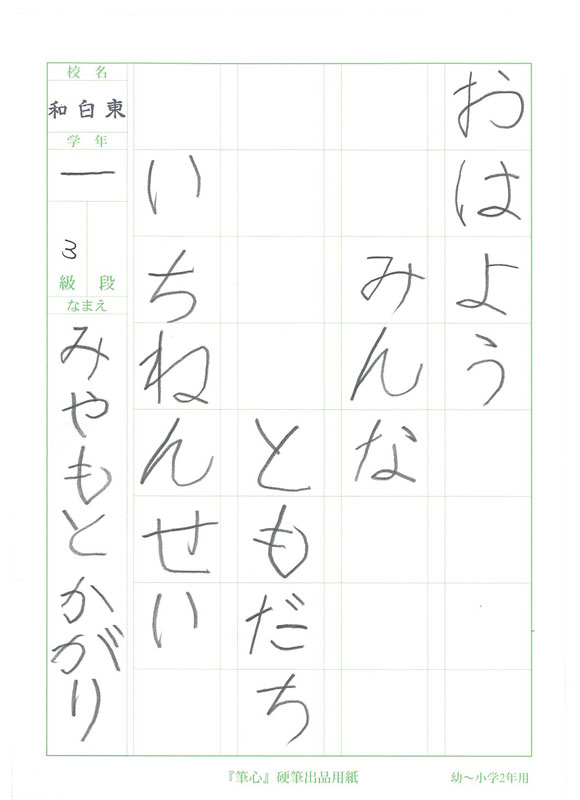 おはよう
みんな
ともだち
いちねんせい
校名
和白東
学年
一
3
級 段
なまえ
みやもとかがり
『筆心』硬筆出品用紙
幼～小学2年用